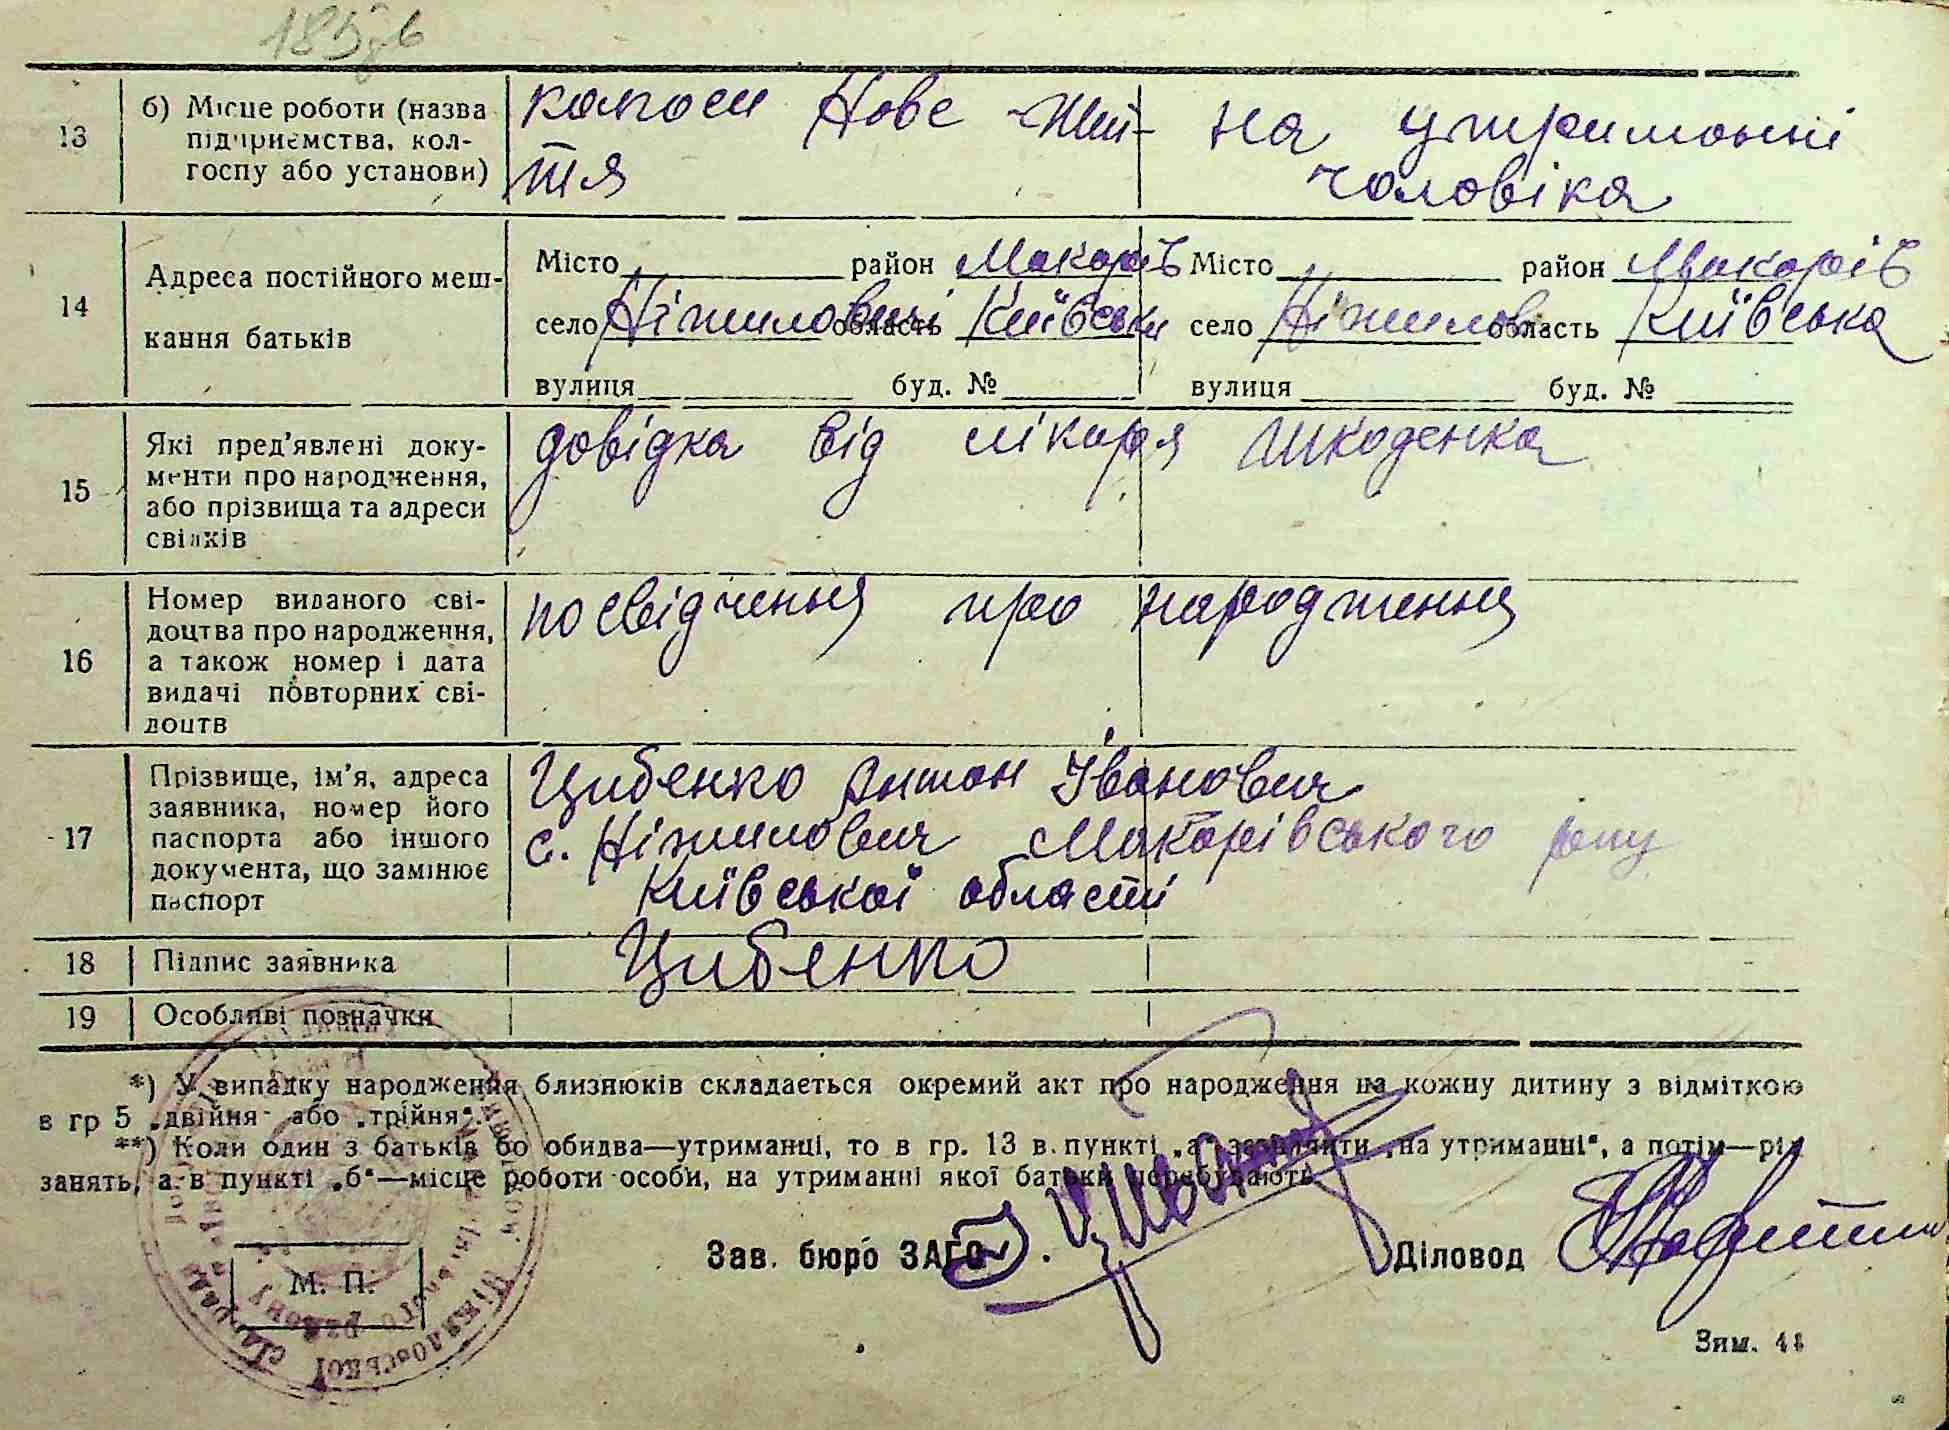 185зв
13 б) Місце роботи (назва підприємства, колгоспу або установи)
колгосп Нове Жит-
тя
на утриманні
чоловіка
14 Адреса постійного мешкання батьків
Місто район Макарів Місто район Макарів
село Ніжиловичі область Київськи село Ніжилов область Київська
вулиця буд. № вулиця буд. №
15 Які пред'явлені документи про народження, або прізвища та адреси свідків
довідка від лікаря Шкоденка
16 Номер виданого свідоцтва про народження, а також номер і дата видачі повторних свідоцтв
посвідчення про народження
17 Прізвище, ім'я, адреса заявника, номер його паспорта або іншого документа, що замінює паспорт
Цибенко Антон Іванович
с. Ніжиловичи Макарівського р-ну
Київської області
18 Підпис заявника Цибенко
19 Особливі позначки
*) У випадку народження близнюків складається окремий акт про народження на кожну дитину з відміткою
в гр 5 „двійня" або „трійня".
**) Коли один з батьків бо обидва—утриманці, то в гр. 13 в пункті „а" зазначити „на утриманні", а потім—рід
занять, а в пункті „б"—місце роботи особи, на утриманні якої батьки перебувають.
Зав. бюро ЗАГС Діловод
М. П.
Зим. 48